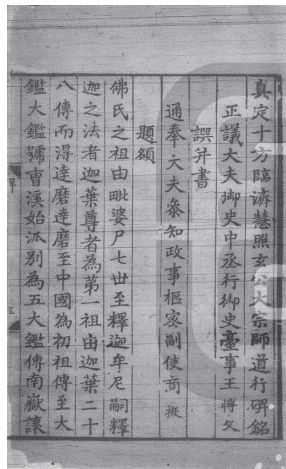 真定十方臨濟慧照玄公大宗師道行碑銘
正議大夫御史中丞行御史臺事王博文
譔并書
通奉大夫叅知政事樞密副使商挺
題額
佛氏之祖由毗婆尸七世至釋迦牟尼嗣釋
迦之法者迦葉尊者為第一祖由迦葉二十
八傳而淂達磨達磨至中國為初祖傳至大
鑑大鑑號曺溪始派別為五大鑑傳南嶽讓